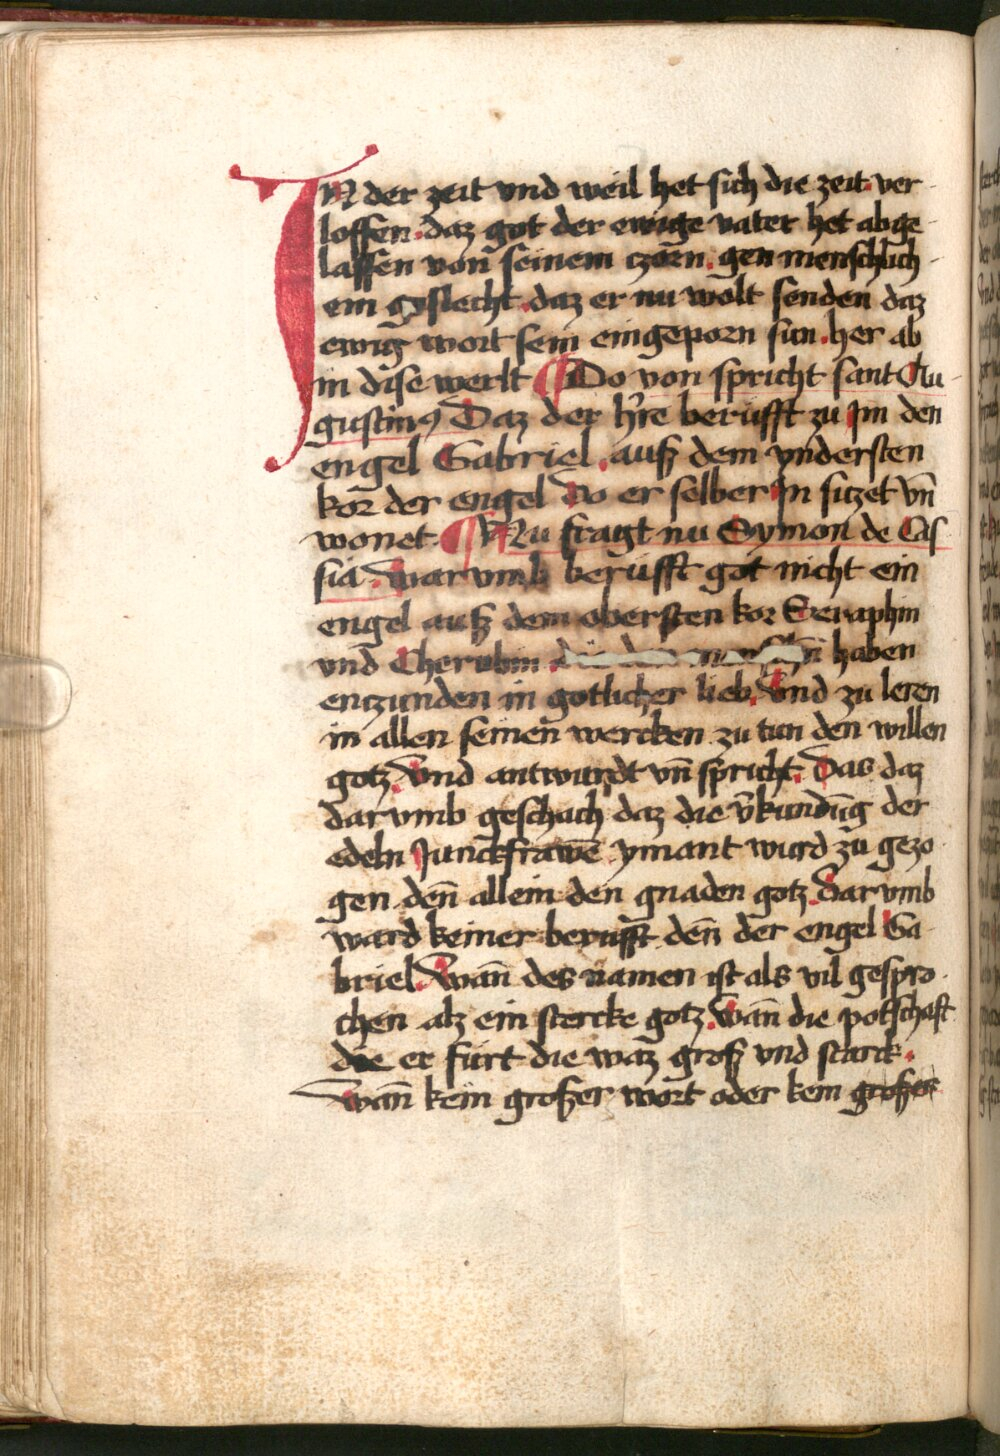 IN der zeit vnd weil het sich die zeit ver
loffen. daz got der ewige vater het abge
lassen von seinem czorn. gen menschlich
em geslecht. daz er nu wolt senden daz
ewig wort sein eingeporn sun. her ab
in dise werlt ¶ Do von spricht sant Au
gustinꝰ Daz der h̾re berufft zu Im den
engel Gabriel. auß dem vndersten
kor der engel Do er selber In siczet vn̄
wonet. ¶ Nu fragt nu Symon de Cas
sia. warvmb berufft got nicht ein
engel auß dem obersten kor Seraphin
vnd Cherubin haben
enczunden in gotlicher lieb. Vnd zu leren
in allen seinen wercken zu tun den willen
gotz. Vnd antwurdt vn̄ spricht. Das daz
darvmb geschach daz die v̾kundūg der
edeln Junckfrawē ymant wurd zu gezo
gen den̄ allein den gnaden gotz. Darvmb
ward keiner berufft den̄ der engel Ga
briel. Wan̄ des namen ist als vil gespro
chen alz ein stercke gotz. Wan̄ die potschaft
die er fürt die waz groß vnd starck.
Wan̄ kein großer wort oder kein großer